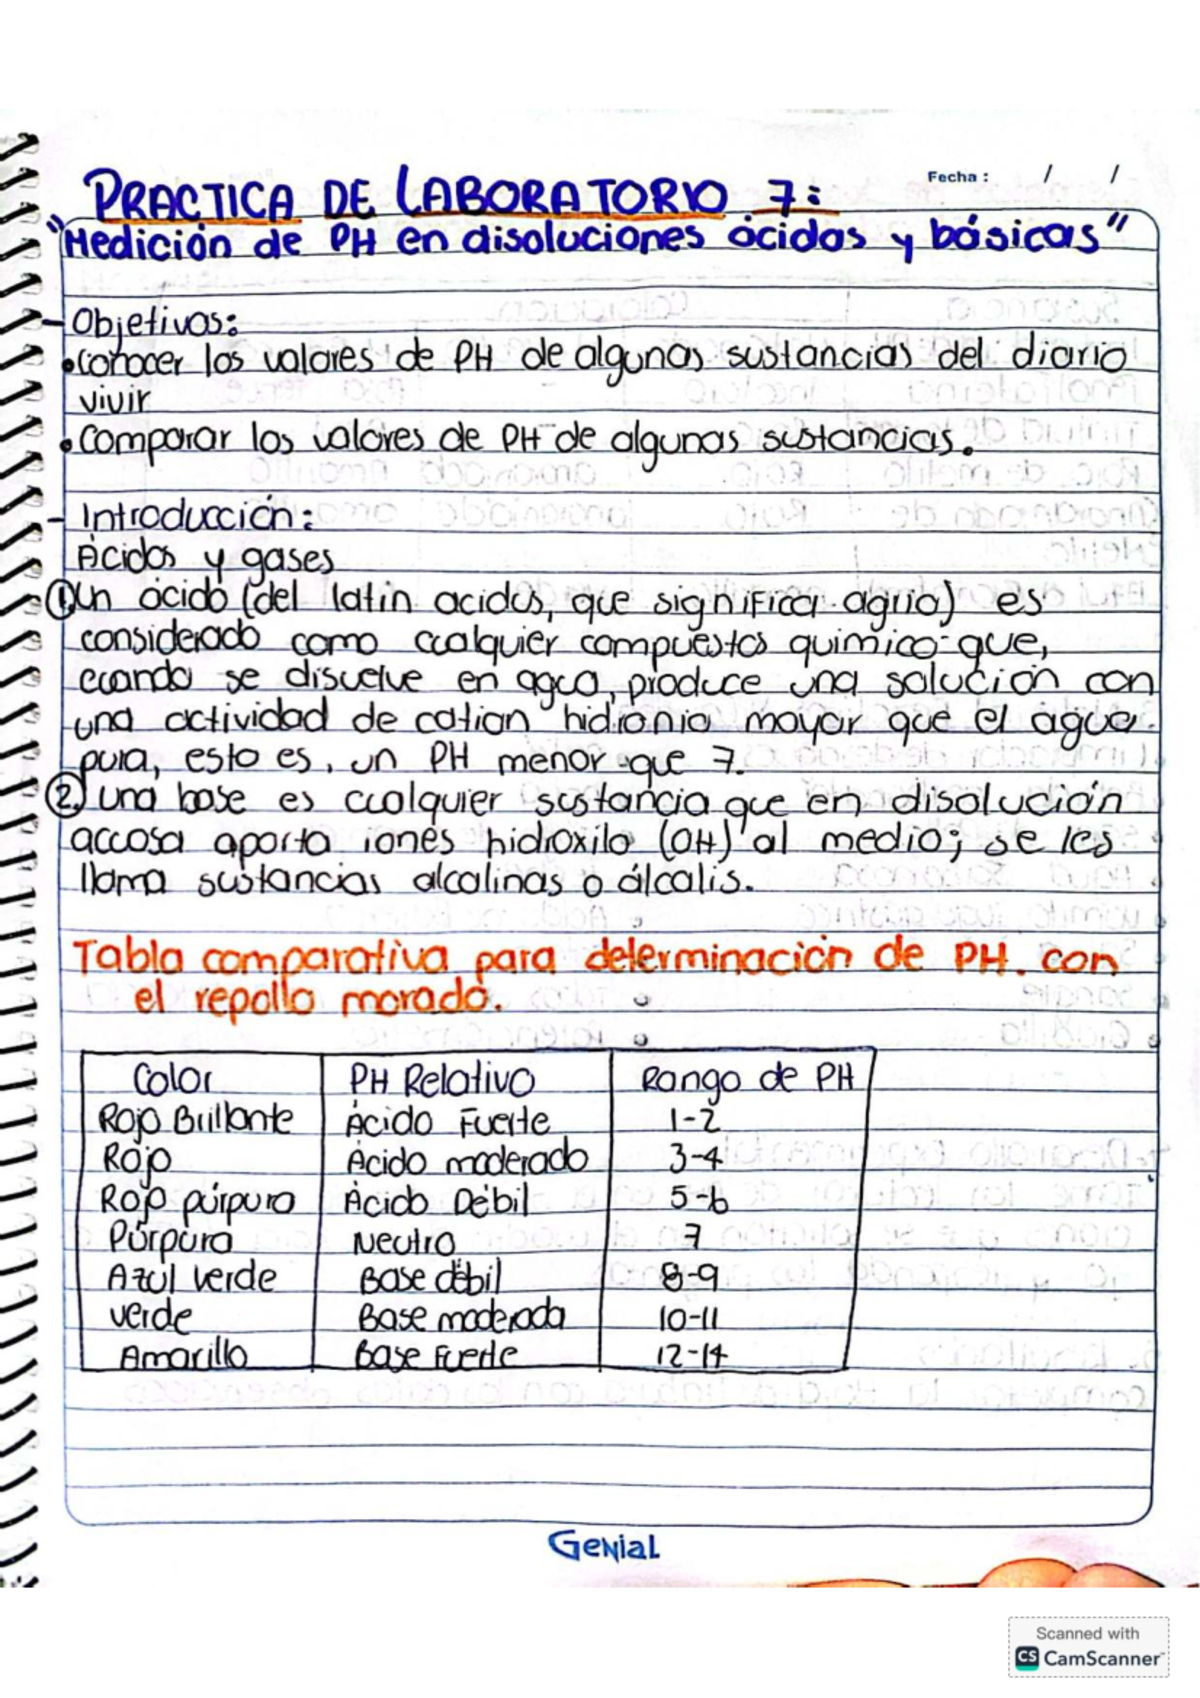 Fecha: / /
PRACTICA DE LABORATORIO 7:
"Medición de PH en disoluciones ácidas y básicas"
- Objetivos:
• Conocer los valores de PH de algunas sustancias del diario
vivir
• Comparar los valores de PH de algunas sustancias.
- Introducción:
Ácidos y gases
1. Un ácido (del latin acidus, que significa agrio) es
considerado como cualquier compuestos químico que,
cuando se disuelve en agua, produce una solución con
una actividad de catión hidronio mayor que el agua
pura, esto es, un PH menor que 7.
2. una base es cualquier sustancia que en disolución
accosa aporta iones hidroxilo (OH) al medio; se les
llama sustancias alcalinas o álcalis.
Tabla comparativa para determinación de PH. con
el repollo morado.
Color PH Relativo Rango de PH
Rojo Brillante Ácido Fuerte 1-2
Rojo Ácido moderado 3-4
Rojo púrpura Ácido Débil 5-6
Púrpura Neutro 7
Azul verde Base débil 8-9
verde Base moderada 10-11
Amarillo Base Fuerte 12-14
Genial
Scanned with
CS CamScanner